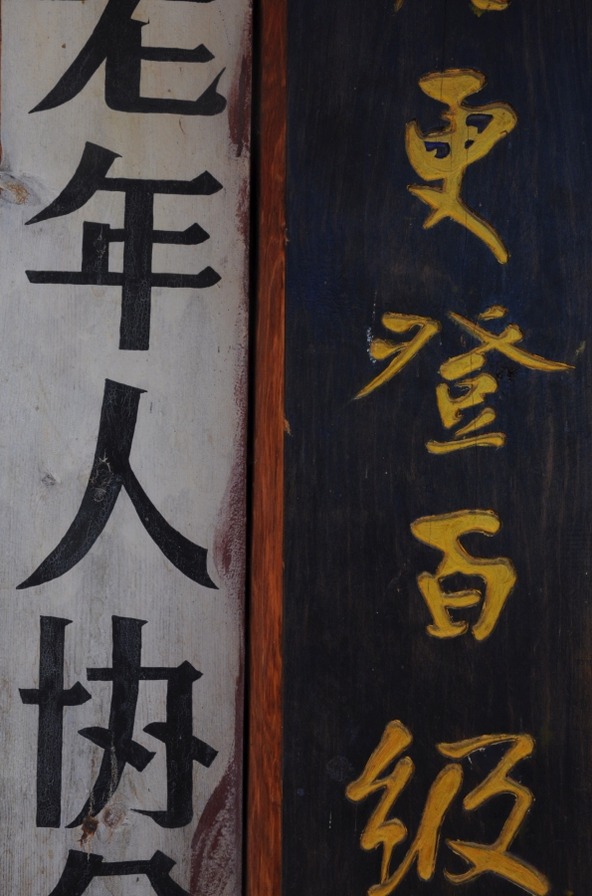 更登百级
老年人协会